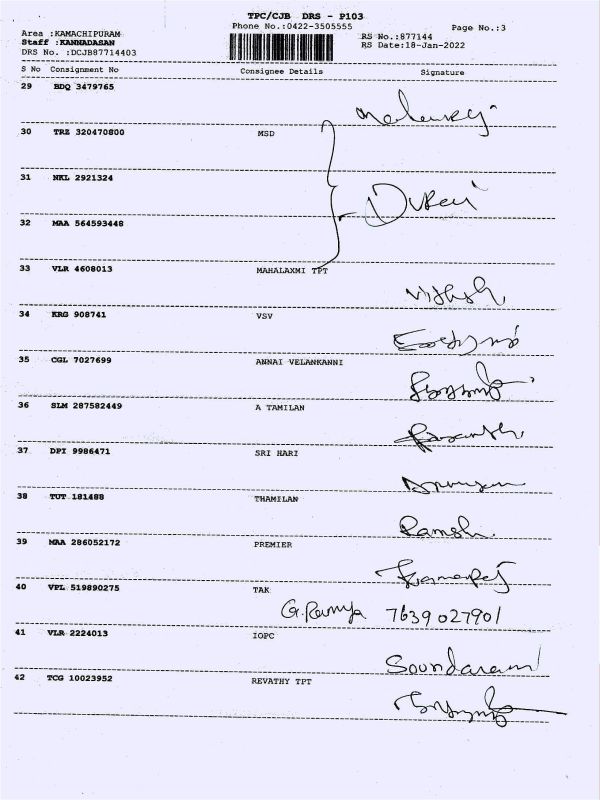 TPC/CJB DRS - P103
Phone No.:0422-3505555
Page No.:3
Area :KAMACHIPURAM
Staff :KANNADASAN
DRS No. :DCJB87714403
RS No.:877144
RS Date:18-Jan-2022
S No Consignment No Consignee Details Signature
29 BDQ 3479765
30 TRZ 320470800 MSD
31 NKL 2921324
32 MAA 564593448
33 VLR 4608013 MAHALAXMI TPT
34 KRG 908741 VSV
35 CGL 7027699 ANNAI VELANKANNI
36 SLM 287582449 A TAMILAN
37 DPI 9986471 SRI HARI
38 TUT 181488 THAMILAN
Ramesh
39 MAA 286052172 PREMIER
40 VPL 519890275 TAK
G.Ramya 7639027901
41 VLR 2224013 IOPC
Soundaram
42 TCG 10023952 REVATHY TPT